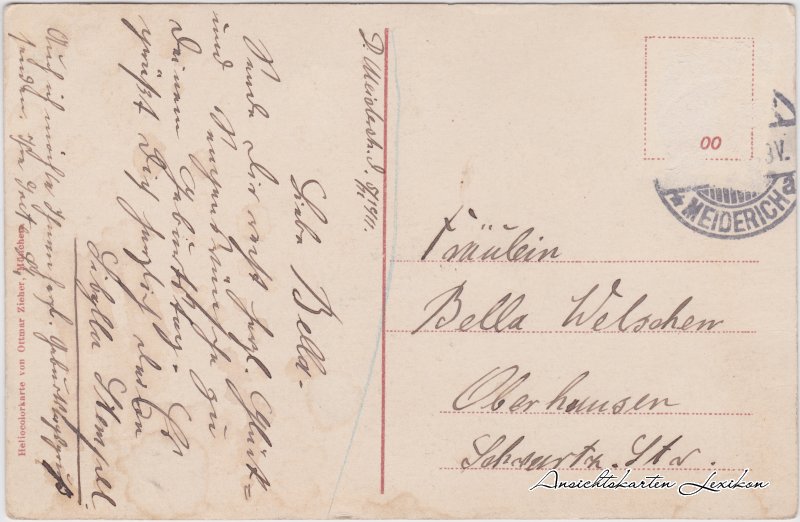 D. Meiderich. d. 8/VI 1911.
Liebe Bella.
Sende Dir recht herzl. Glück=
und Segenswünsche zu
Deinem Geburtstag. Es
grüßt Dich herzlich deren
Sibylla Stempel
Auch ich möchte Ihnen herzl. Geburtstagsgruß
senden.
Heliocolorkarte von Ottmar Zieher, München
00
* MEIDERICH a
Fräulein
Bella Welschen
Oberhausen
Schwartz. Str.
Ansichtskarten Lexikon